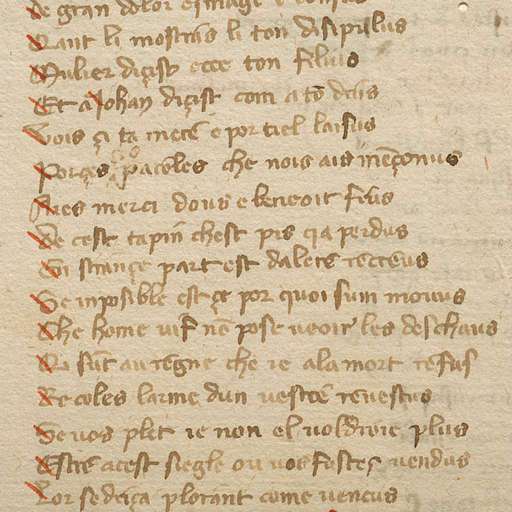 de gran dolor
Qant li mostras li ton disipulus
Mulier diçist ecce ton filius
Et a Johan diçist com a to deus
Vois çi ta mere e por tiel laisus
Porçes paroles che nois ais mençonus
Aies merci dous e beneoit fius
De cest tapin chest pis q a perdus
Si strançe part est dalere receus
Se inposible est çe por quoi sum mouus
Che home uif nen pose ueoir les deschaus
Qi sunt au regne che ie ala mort refus
Re coles larme dun uestre reuestus
Se uos plet ie non el uoldroie plus
Estre acest siegle ou uos fustes uendus
Lor se driça plorant come uencus